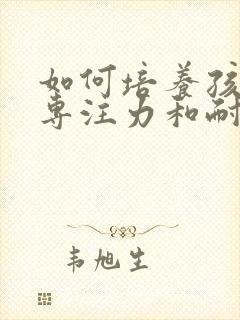 如何培养孩
专注力和耐
韦旭生